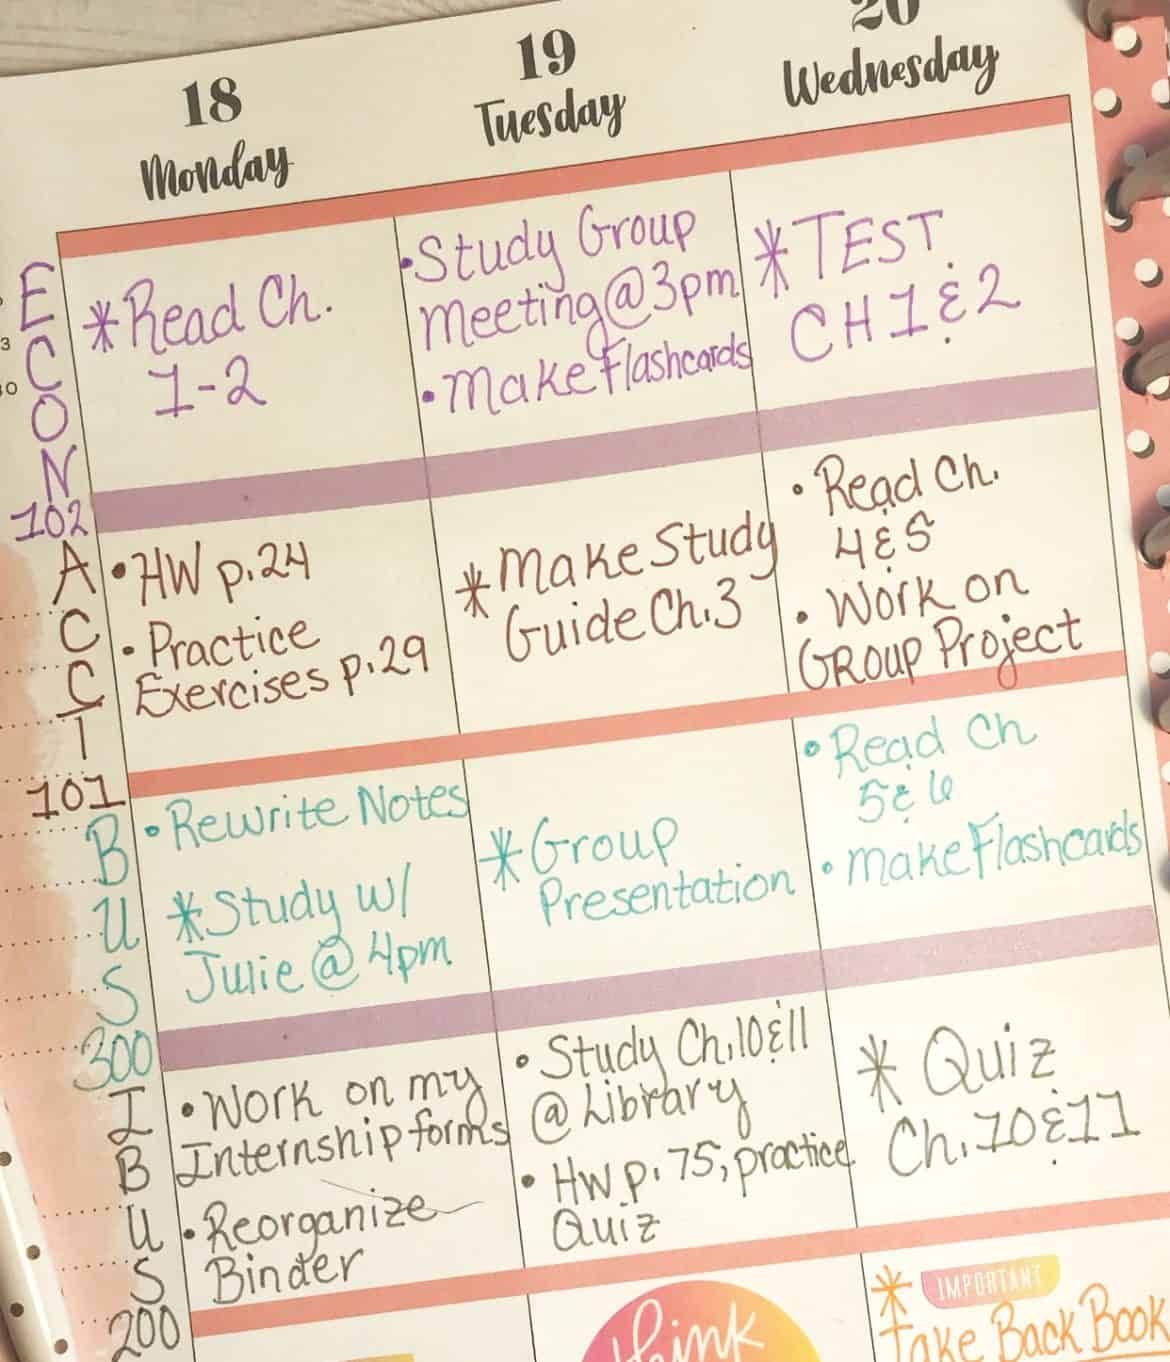 18
Monday
19
Tuesday
20
Wednesday
ECON
102
* Read Ch.
1-2
• Study Group
Meeting @ 3pm
• Make Flashcards
* TEST
CH 1 & 2
ACCT
101
• HW p. 24
• Practice
Exercises p. 29
* Make Study
Guide Ch. 3
• Read Ch.
4 & 5
• Work on
GROUP Project
BUS
300
• Rewrite Notes
* Study w/
Julie @ 4pm
* Group
Presentation
• Read Ch
5 & 6
• Make Flashcards
IBUS
200
• Work on my
Internship forms
• Reorganize
Binder
• Study Ch. 10 & 11
@ Library
• HW p. 75, practice
Quiz
* Quiz
Ch. 10 & 11
think
* IMPORTANT
Take Back Book